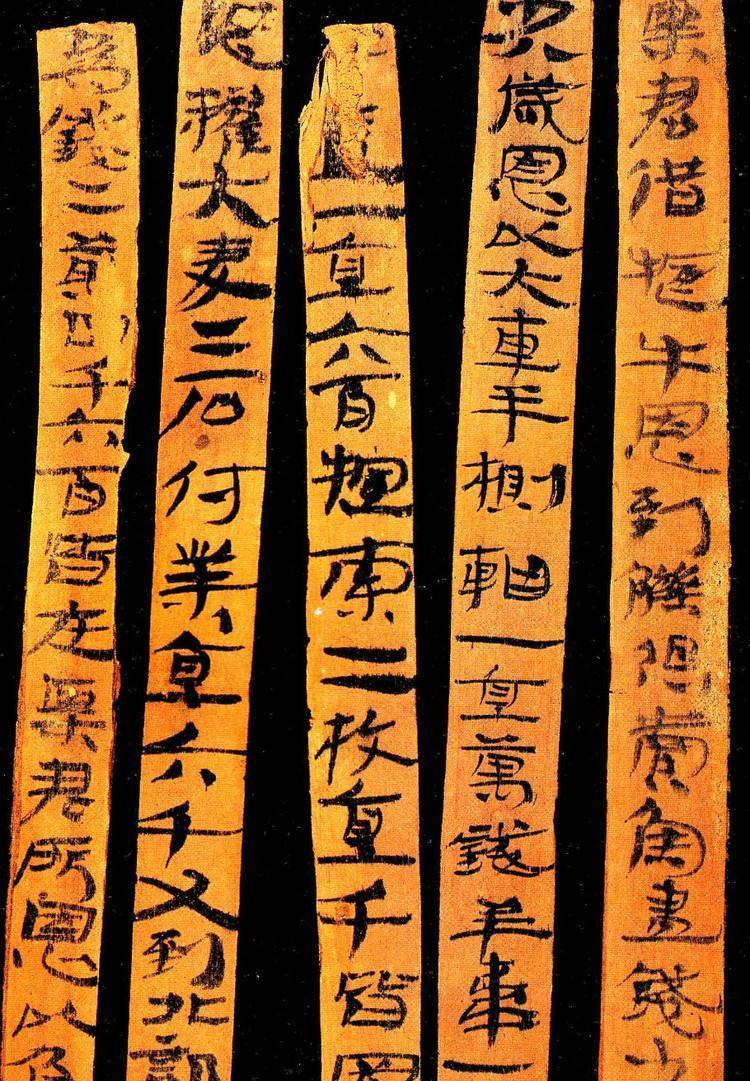 粟君借牛恩到觻得賣魚盡錢少
歲恩以大車半軸一直萬錢羊韋一
一直六百索二枚直千皆置
恩糴大麥二石付業直六千又到北部
為錢二萬四千六百皆在粟君所恩以負